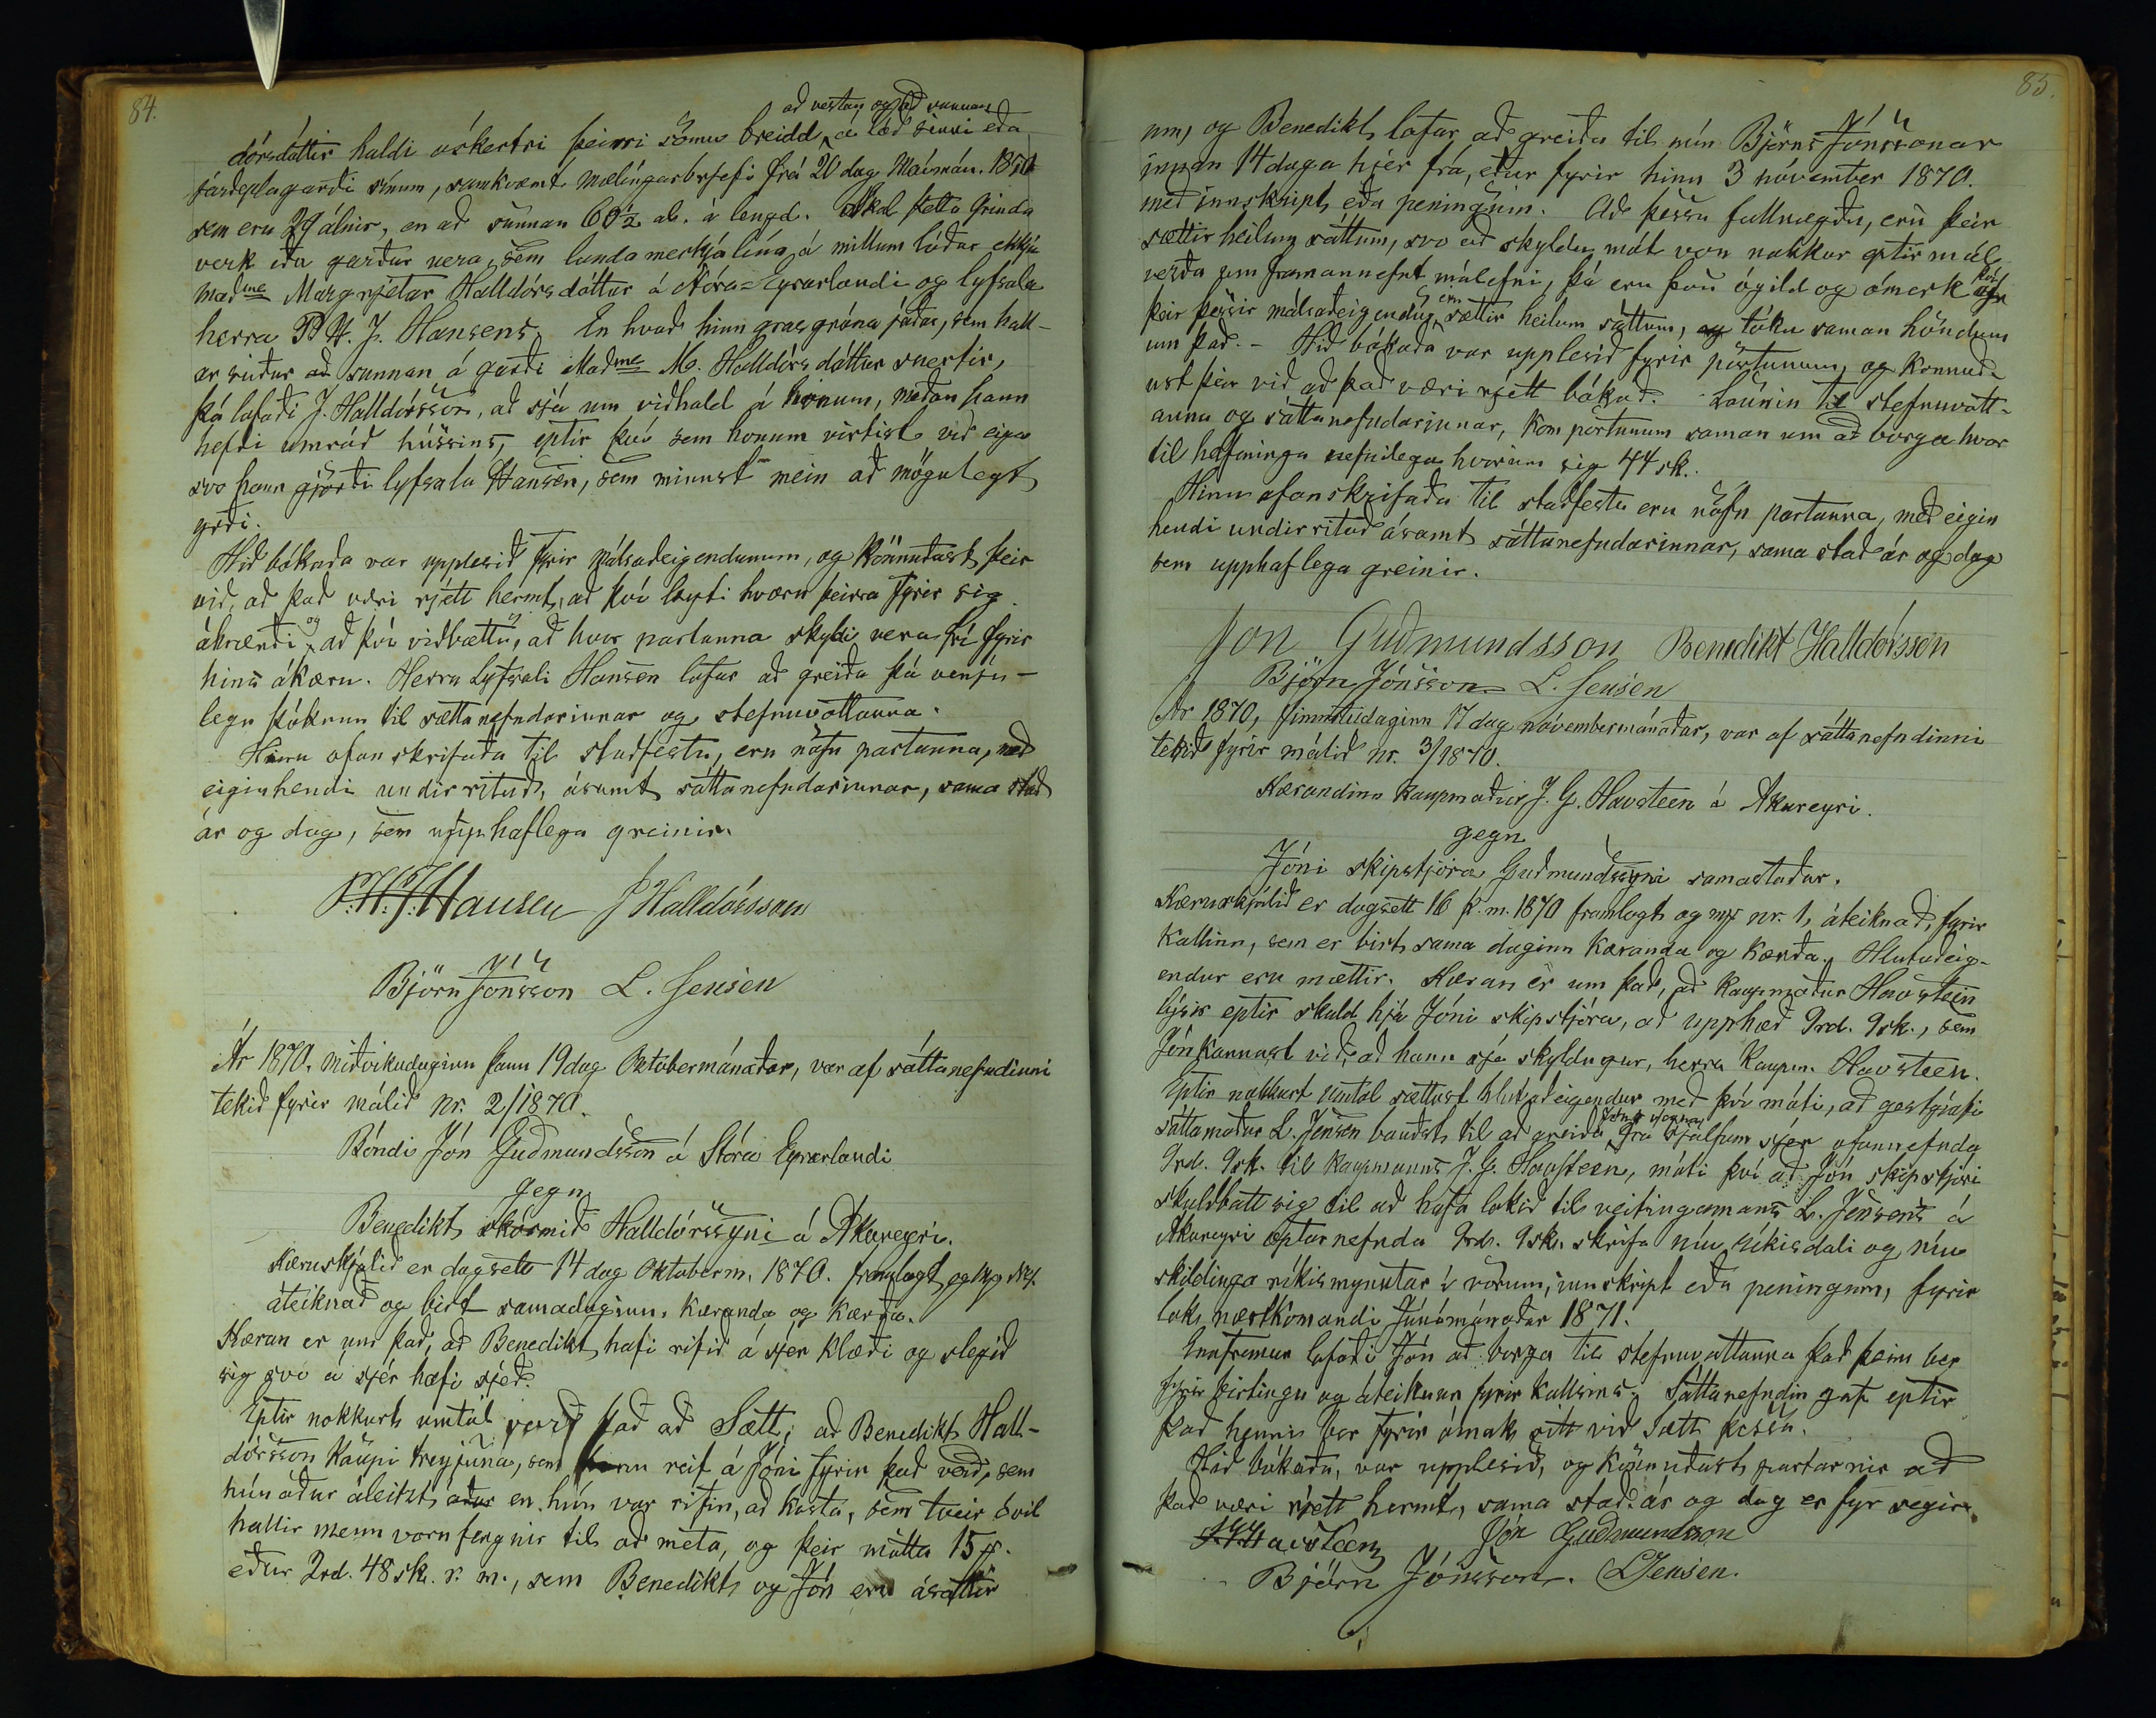 84.
að vestan og að sunnan
dórsdóttir haldi óskertri þeirri sömu breidd á lóð sinni eða
jarðeplagarði sínum, samkvæmt mælingarbrjefi frá 20 dag Maímán. 1850
sem eru 29 álnir, en að sunnan 60½ al. á lengd. Skal þetta grinda
verk eða garður vera, sem landamerkjalína á millum lóðar ekkju
madme Margrjetar Halldórsdóttur á Stóra-Eyrarlandi og lyfsala
herra P. H. J. Hansens. En hvað hinn grasgróna jaðar, sem hall-
ar suður að sunnan á garði Madme M. Halldórsdóttur snertir,
þá lofaði J. Halldórsson, að sjá um viðhald á honum, meðan hann
hefði umráð hússins, eptir því sem honum virtist við eiga
svo hann gjörði lyfsala Hansen, sem minnst mein að mögulegt
yrði.
Hið bókaða var upplesið fyrir málsaðeigendunum, og könnuðust þeir
við, að það væri rjétt hermt, að því leyti hvorn þeirra fyrir sig
áhrærði og að því viðbættu, að hvor partanna skyldi vera frí fyrir
hins ákæru. Herra Lyfsali Hansen lofar að greiða þá venju-
legu þóknun til sættanefndarinnar og stefnuvottanna.
Hinu ofanskrifaða til staðfestu, eru nöfn partanna, með
eiginhendi undirrituð, ásamt sáttanefndarinnar, sama stað
ár og dag, sem upphaflega greinir.
P. H. J. Hansen J Halldórsson
Björn Jónsson L. Jensen
Ár 1870, miðvikudaginn þann 19 dag Októbermánaðar, var af sáttanefndinni
tekið fyrir málið nr. 2/1870.
Bóndi Jón Guðmundsson á Stóra Eyrarlandi
gegn
Benedikt skósmið Halldórssyni á Akureyri.
Kæruskjalið er dagsett 14 dag Októberm. 1870. framlagt og
áteiknað og birt samadaginn, kæranda og kærða.
Kæran er um það, að Benedikt hafi rifið á sjer klæði og slegið
sig svo á sjér hafi sjeð.
Eptir nokkurt umtal varð það að Sætt, að Benedikt Hall-
dórsson kaupi treyjuna, sem hann reif á Jóni fyrir það verð, sem
hún áður áleitzt en hún var rifin, að kosta, sem tveir óvil
hallir menn voru fengnir til að meta, og þeir mátu 15
eður 2rd. 48 sk. r. m., sem Benedikt og Jón eru ásáttir
85.
um, og Benedikt lofar að greiða til mín Björns Jónssonar
innan 14 daga hjér frá, eður fyrir hinn 3 nóvember 1870.
með innskript eða peningum. Að þessu fullnægðu, eru þeir
sættir heilum sáttum, svo að skyldu mót von nokkur eptirmál
verða um framannefnt málefni, þá eru þau ógild og ómerk því
þeir þessir málsaðeigendur eru sættir heilum sáttum, og tóku saman höndum
um það. - Hið bókaða var upplesið fyrir pörtunum, og könnuð-
ust þeir við að það væri rjétt bókað. Launin til stefnuvott-
anna og sáttanefndarinnar, kom pörtunum saman um að borga hvor
til helminga nefnilega hvorum sig 44 sk.
Hinu ofanskrifaða til staðfestu eru nöfn partanna, með eigin
hendi undirrituð ásamt sáttanefndarinnar, sama stað ár og dag
sem upphaflega greinir.
Jon Guðmundsson Benedikt Halldórsson
Björn Jónsson L. Jensen
Ár 1870, fimmtudaginn 17 dag nóvembermánaðar, var af sáttanefndinni
tekið fyrir málið nr. 3/1870.
Kærandinn kaupmaður J. G. Havsteen á Akureyri.
gegn
Jóni skipstjóra Guðmundssyni samastaðar.
Kæruskjalið er dagsett 16 þ. m. 1870 framlagt og nr. 1, áteiknað, fyrir
kallinn, sem er birt sama daginn kæranda og kærða. Hlutaðeig-
endur eru mættir. Kæran er um það, að kaupmaður Havstein
lýsir eptir skuld hjá Jóni skipstjóra, að upphæð 9rd. 9sk., sem
Jón kannast við, að hann sje skyldugur, herra kaupm. Havsteen.
Eptir nokkurt umtal sættust hlutaðeigendur með því móti, að gestgjafi
sáttamaður L. Jensen bauðst til að greiða frá sjálfum sjer ofannefnda
9rd. 9sk. til kaupmanns J. G. Havsteen, móti því að Jón skipstjóri
skuldbatt sig til að hafa lokið til veitingamanns L. Jensens á
Akureyri optarnefnda 9rd. 9sk. skrifa níu ríkisdali og níu
skildinga ríkismyntar í vörum, innskript eða peningum, fyrir
lok næstkomandi Júnímánaðar 1871.
Ennfremur lofaði Jón að borga til stefnuvottanna það þeim ber
fyrir birtingu og áteiknun fyrir kallsins. Sáttanefndin gaf eptir
það henni bar fyrir ómak sitt við sætt þessa.
Hið bókaða, var upplesið, og könnuðust partarnir að
það væri rjett hermt, sama stað, ár og dag er fyr segir.
J G Havsteen Jón Guðmundsson
Björn Jónsson. L Jensen.